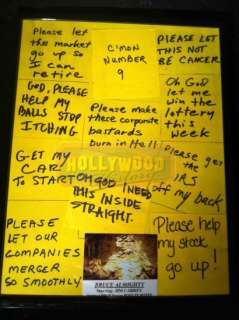 Please let
this market
go up so
I can
retire
C'MON
NUMBER
9
PLEASE LET
THIS NOT
BE CANCER
GOD, PLEASE
HELP MY
BALLS STOP
ITCHING
Please make
these corporate
bastards
burn in Hell!
Oh God
let me
win the
lottery
this
week
HOLLYWOOD
GET MY
CAR
TO START
OH GOD I NEED
THIS INSIDE
STRAIGHT.
Please get
the
IRS
off my back
PLEASE
LET OUR
COMPANIES
MERGER
GO SMOOTHLY
Please help
my stock
go up!
BRUCE ALMIGHTY